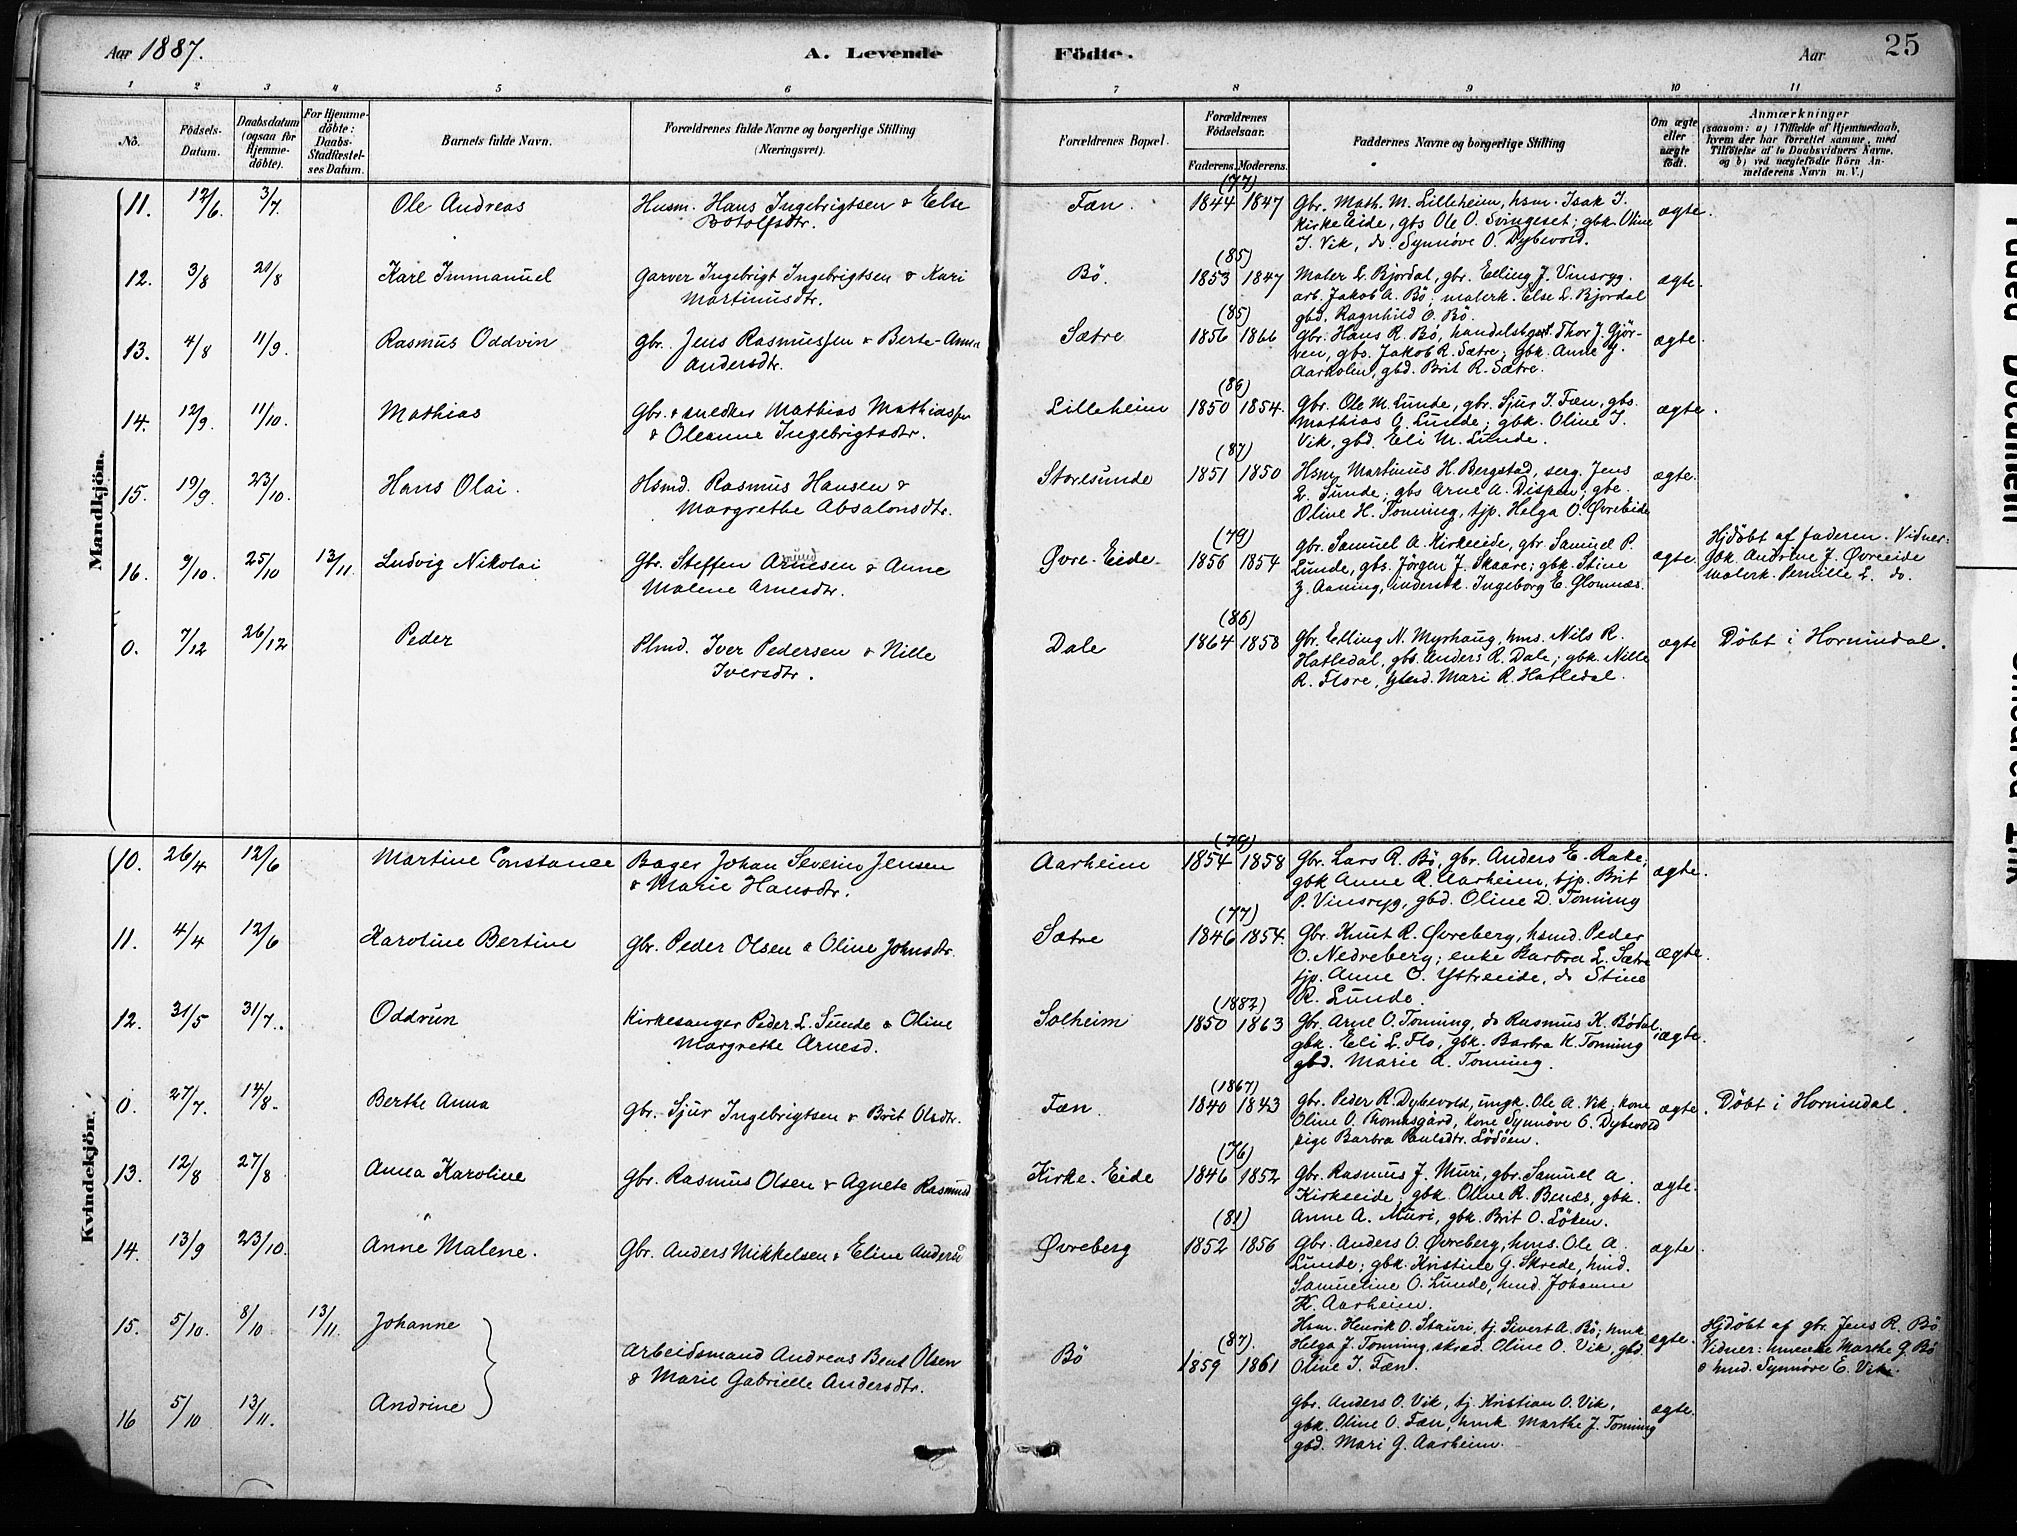 Aar 1887.
A. Levende
Födte.
Aar
25
1 2 3 4 5 6 7 8 9 10 11
No.
Födsels-Datum.
Daabsdatum (ogsaa for Hjemmedöbte).
For Hjemmedöbte: Daabs-Stadfæstelses Datum.
Barnets fulde Navn.
Forældrenes fulde Navne og borgerlige Stilling (Næringsvei).
Forældrenes Bopæl.
Forældrenes Födselsaar.
Faderens. Moderens.
Faddernes Navne og borgerlige Stilling
Om ægte eller uægte födt.
Anmærkninger
(saasom: a) i Tilfælde af Hjemmedaab, hvem der har forrettet samme, med Tilföielse af to Daabsvidners Navne, og b) ved uægtefödte Börn Anmelderens Navn m. V.)
Mandkjön.
11. 12/6. 3/7. Ole Andreas
Husm. Hans Ingebrigtsen & Else
Botolfsdtr.
Fæn.
(77)
1844 1847
Gbr. Math. M. Lilleheim, hsm. Isak I.
Kirke Eide, gbs Ole O. Svingeset; gbk. Oline
I. Vik, do. Synnøve O. Dybevold.
ægte.
12. 3/8 20/8 Karl Immanuel
Garver Ingebrigt Ingebrigtsen & Kari
Martinusdtr.
Bø.
(85)
1853 1847
Maler L. Bjordal, gbr. Elling J. Vinsryg.
arb. Jakob A. Bø; malerk. Else L. Bjordal
gbd. Ragnhild O. Bø.
ægte.
13. 4/8 11/9. Rasmus Oddvin
gbr. Jens Rasmussen & Berte-Anna
Andersdtr.
Sætre
(85)
1856 1866
Gbr. Hans R. Bø, handelsbest. Thor J. Gjør-
ven, gbs. Jakob R. Sætre; gbk. Anne J.
Aarholm, gbd. Brit R. Sætre.
ægte.
14. 12/9. 11/10. Mathias
Gbr. & snedker Mathias Mathiassen
& Oleanne Ingebrigtsdtr.
Lilleheim
(86)
1850 1854.
Gbr. Ole M. Lunde, gbr. Sjur I. Fæn, gbs.
Mathias O. Lunde; gbk. Oline I.
Vik, gbd. Eli M. Lunde.
ægte.
15. 19/9. 23/10. Hans Olai.
Hsmd. Rasmus Hansen &
Margrethe Absalonsdtr.
Storesunde
(87)
1851 1850
Hsm. Martinus H. Bergstad, serg. Jens
L. Sunde; gbs Arne A. Dispen; gbe.
Oline H. Tonning, tjp. Helga O. Øvreeide
ægte.
16. 9/10. 25/10 13/11. Ludvig Nikolai
Gbr. Steffen Arnesen & Anne
Malene Arnesdtr.
Øvre-Eide.
(79)
1856 1854
gbr. Samuel A. Kirkeeide, gbr Samuel P.
Lunde, gbs. Jørgen J. Skaare; gbk. Stine
Z. Aaning, inderstk. Ingeborg E. Glomnæs.
ægte.
Hjdøbt af faderen. Vidner:
gbk. Andrine J. Øvreeide
Malerk. Pernille L. do.
0. 7/12 26/12 Peder
Plmd. Iver Pedersen & Nille
Iversdtr.
Dale
(86)
1864 1858
Gbr. Elling N. Myrhaug, hms. Nils R.
Hatledal, gbs. Anders R. Dale; gbk. Nille
R. Flore, hmd. Mari R. Hatledal.
ægte
Døbt i Hornindal.
Kvindekjön.
10. 26/4 12/6 Martine Constance
Bager Johan Severin Jensen
& Marie Hansdtr.
Aarheim
(79)
1854 1858
Gbr. Lars R. Bø, gbr. Anders E. Rake,
gbk Anne R. Aarheim, tjp. Brit
P. Vinsryg, gbd. Oline D. Tonning
ægte.
11. 4/4 12/6 Karoline Bertine
Gbr. Peder Olsen & Oline Johnsdtr.
Sætre
(77)
1846 1854.
Gbr. Knut R. Øvreberg, hsmd. Peder
O. Nedreberg; enke Barbra L. Sætre
tjp. Anne O. Ytreeide, do Stine
R. Lunde.
ægte.
12. 31/5 31/7. Oddrun
Kirkesanger Peder L. Sunde & Oline
Margrethe Arnesd.
Solheim
(1882)
1850 1863
Gbr. Arne O. Tonning, do Rasmus K. Bødal,
gbk. Eli L. Flo, gbk. Barbra K. Tonning
gbd. Marie R. Tonning.
ægte.
0. 27/7. 14/8. Berthe Anna
gbr. Sjur Ingebrigtsen & Brit Olsdtr.
Fæn.
(1867)
1840 1843
gbr. Peder R. Dybevold, ungk. Ole A. Vik, kone
Oline O. Thomasgård, kone Synnøve O. Dybevold
pige Barbra Paulsdtr. Lødøen.
ægte.
Døbt i Hornindal.
13. 12/8 27/8 Anna Karoline
Gbr. Rasmus Olsen & Agnete Rasmusd
Kirke-Eide
(76)
1846 1852
Gbr. Rasmus J. Muri, gbr. Samuel A.
Kirkeeide; gbk. Oline R. Benæs, gbk.
Anne A. Muri, gbk. Brit O. Løken.
ægte.
14. 13/9 23/10. Anne Malene.
Gbr. Anders Mikkelsen & Eline Andersd
Øvreberg
(81)
1852 1856
Gbr. Anders O. Øvreberg, hms. Ole A.
Lunde; gbk. Kristine G. Skrede, hmd.
Samueline O. Lunde, hmd Johanne
K. Aarheim.
ægte.
15. 5/10. 8/10 13/11. Johanne
Arbeidsmand Andreas Bent Olsen
& Marie Gabrielle Andersdtr.
Bø
(87)
1859 1861
Hsm. Henrik O. Stauri, tj. Sivert A. Bø; hmk
Helga J. Tonning, skræd. Oline O. Vik, gbd.
Oline I. Fæn.
ægte.
Hjdøbt af gbr. Jens R. Bø
Vidner: hmenke Marthe G. Bø
& hmd. Synnøve E. Vik.
16 5/10 13/11. Andrine
Gbr. Anders O. Vik, tj. Kristian O. Vik,
gbk. Oline O. Fæn, hmk Marthe J. Tonning
gbd. Mari G. Aarheim.
ægte.